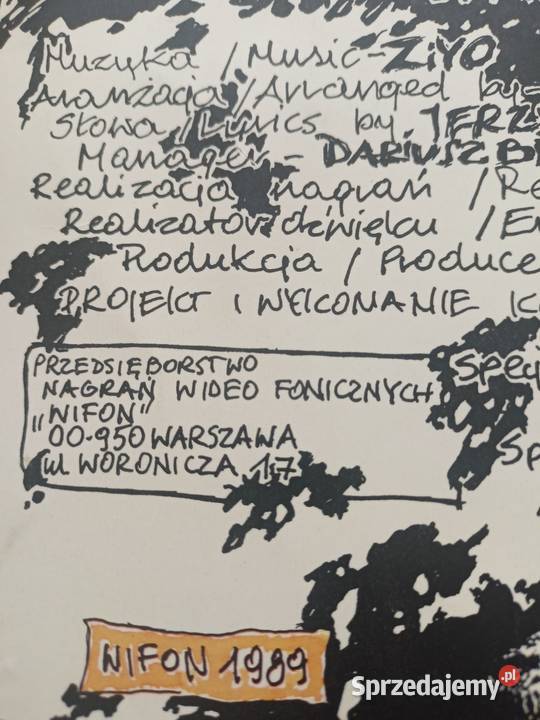 Muzyka / Music - ZIYO
Aranżacja / Arranged by -
Słowa / Lyrics by JERZ
Manager - DARIUSZ B
Realizacja nagrań / Re
Realizator dźwięku / En
Produkcja / Produce
PROJEKT I WYKONANIE K
PRZEDSIĘBORSTWO
NAGRAŃ WIDEO FONICZNYCH
"WIFON"
00-950 WARSZAWA
ul. WORONICZA 17
Spec
Sp
WIFON 1989
Sprzedajemy.pl